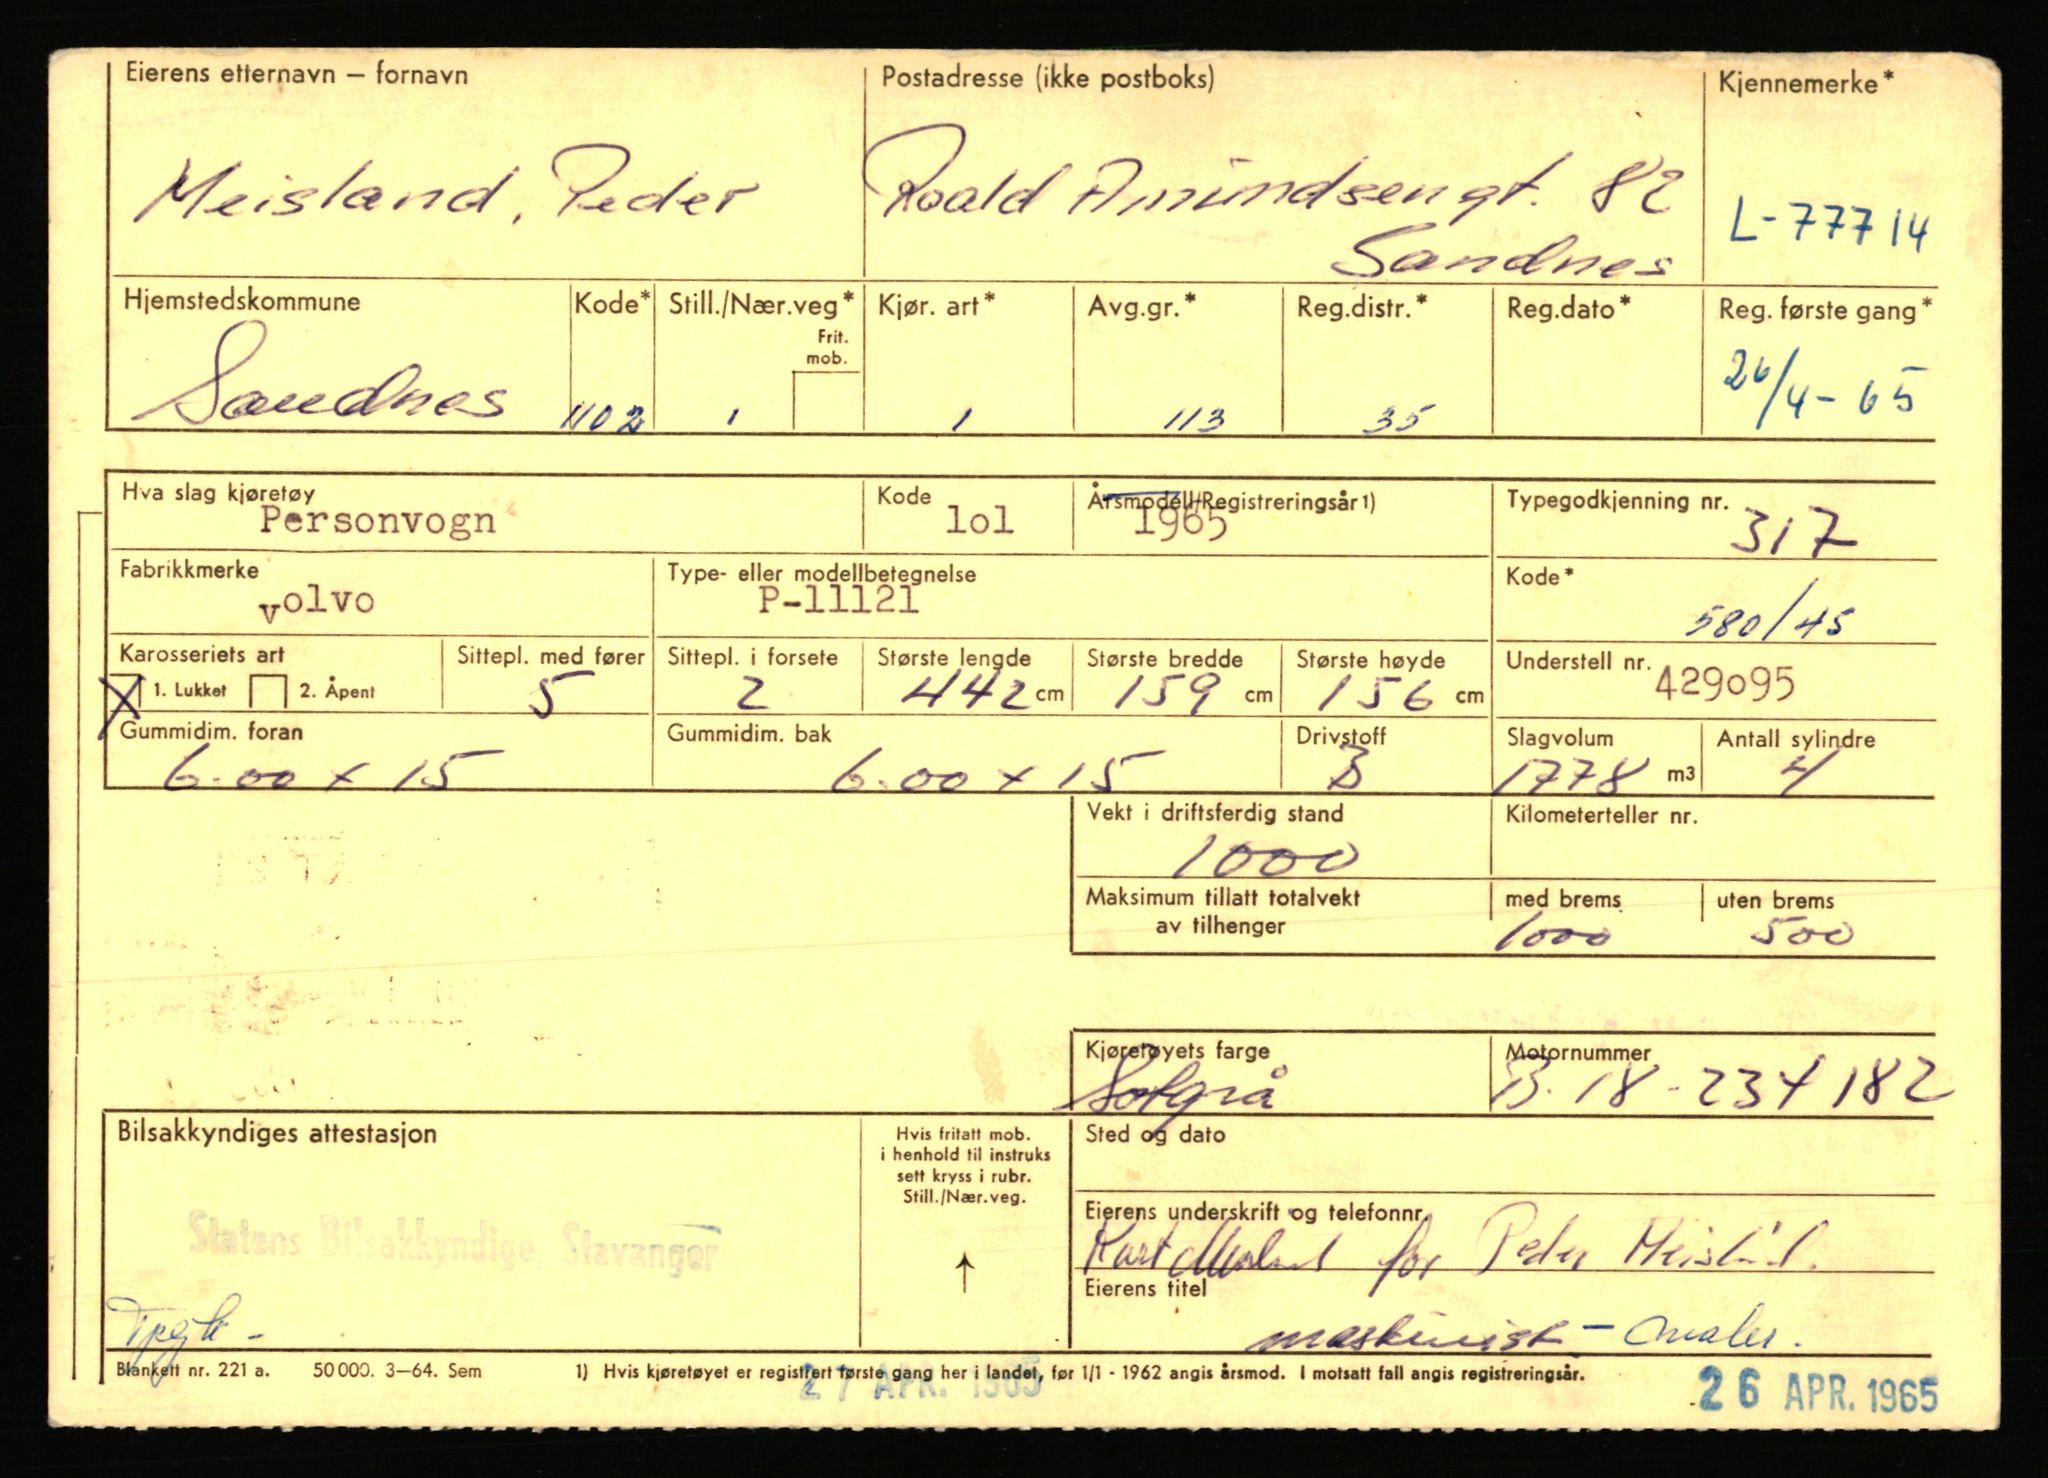 Eierens etternavn – fornavn
Postadresse (ikke postboks)
Kjennemerke*
Meisland, Peder
Roald Amundsengt. 82
Sandnes
L-77714
Hjemstedskommune
Kode*
Still./Nær.veg*
Frit.
mob.
Kjør. art*
Avg.gr.*
Reg.distr.*
Reg.dato*
Reg. første gang*
Sandnes
1102
1
1
113
35
26/4-65
Hva slag kjøretøy
Kode
Årsmodell/Registreringsår 1)
Typegodkjenning nr.
Personvogn
1o1
1965
317
Fabrikkmerke
Type- eller modellbetegnelse
Kode*
volvo
P-11121
580/45
Karosseriets art
Sittepl. med fører
Sittepl. i forsete
Største lengde
Største bredde
Største høyde
Understell nr.
X 1. Lukket
2. Åpent
5
2
442 cm
159 cm
156 cm
429o95
Gummidim. foran
Gummidim. bak
Drivstoff
Slagvolum
Antall sylindre
6.00 x 15
6.00 x 15
B
1778 m3
4
Vekt i driftsferdig stand
Kilometerteller nr.
1000
Maksimum tillatt totalvekt
av tilhenger
med brems
uten brems
1000
500
Kjøretøyets farge
Motornummer
grå
B.18-234182
Bilsakkyndiges attestasjon
Hvis fritatt mob.
i henhold til instruks
sett kryss i rubr.
Still./Nær.veg.
↑
Sted og dato
Statens Bilsakkyndige, Stavanger
Eierens underskrift og telefonnr.
for Peder
Eierens titel
maskinist – maler.
Blankett nr. 221 a.
50 000. 3–64. Sem
1) Hvis kjøretøyet er registrert første gang her i landet, før 1/1 - 1962 angis årsmod. I motsatt fall angis registreringsår.
27 APR. 1965
26 APR. 1965